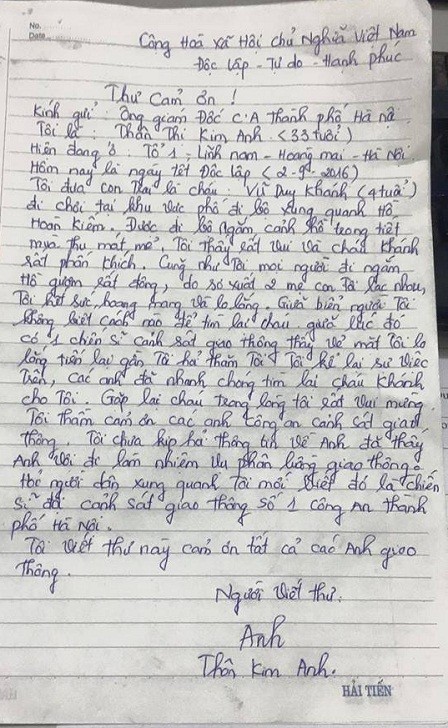 No.
Date
Cộng Hoà xã Hội chủ Nghĩa Việt Nam
Độc lập - Tự do - Hạnh phúc
Thư Cảm ơn !
Kính gửi : Ông giám Đốc C.A Thành phố Hà nội
Tôi là : Thân Thị Kim Anh (33 tuổi)
Hiện đang ở : Tổ 1 : Lĩnh nam - Hoàng mai - Hà Nội
Hôm nay là ngày tết Độc lập (2-9-2016)
Tôi đưa con trai là cháu : Vũ Duy Khánh (4 tuổi)
đi chơi tại khu vực phố đi bộ xung quanh Hồ
Hoàn Kiếm. Được đi bộ ngắm cảnh hồ trong tiết
mùa thu mát mẻ. Tôi thấy rất vui và cháu Khánh
rất phấn khích. Cũng như Tôi mọi người đi ngắm
Hồ gươm rất đông, do sơ xuất 2 mẹ con Tôi lạc nhau,
Tôi hết sức hoang mang và lo lắng. Giữa biển người Tôi
không biết cách nào để tìm lại cháu giữa lúc đó
có 1 chiến sĩ cảnh sát giao thông thấy vẻ mặt Tôi lo
lắng tiến lại gần Tôi hỏi thăm Tôi Tôi kể lại sự việc
trên, các anh đã nhanh chóng tìm lại cháu Khánh
cho Tôi. Gặp lại cháu trong lòng tôi rất vui mừng
Tôi thầm cảm ơn các anh công an cảnh sát giao
thông. Tôi chưa kịp hỏi thông tin về Anh đã thấy
Anh vội đi làm nhiệm vụ phân luồng giao thông.
Hỏi người dân xung quanh Tôi mới biết đó là chiến
sĩ đội cảnh sát giao thông số 1 Công An thành
phố Hà Nội.
Tôi viết thư này cảm ơn tất cả các Anh giao
thông.
Người viết thư:
Anh
Thân Kim Anh.
HẢI TIẾN